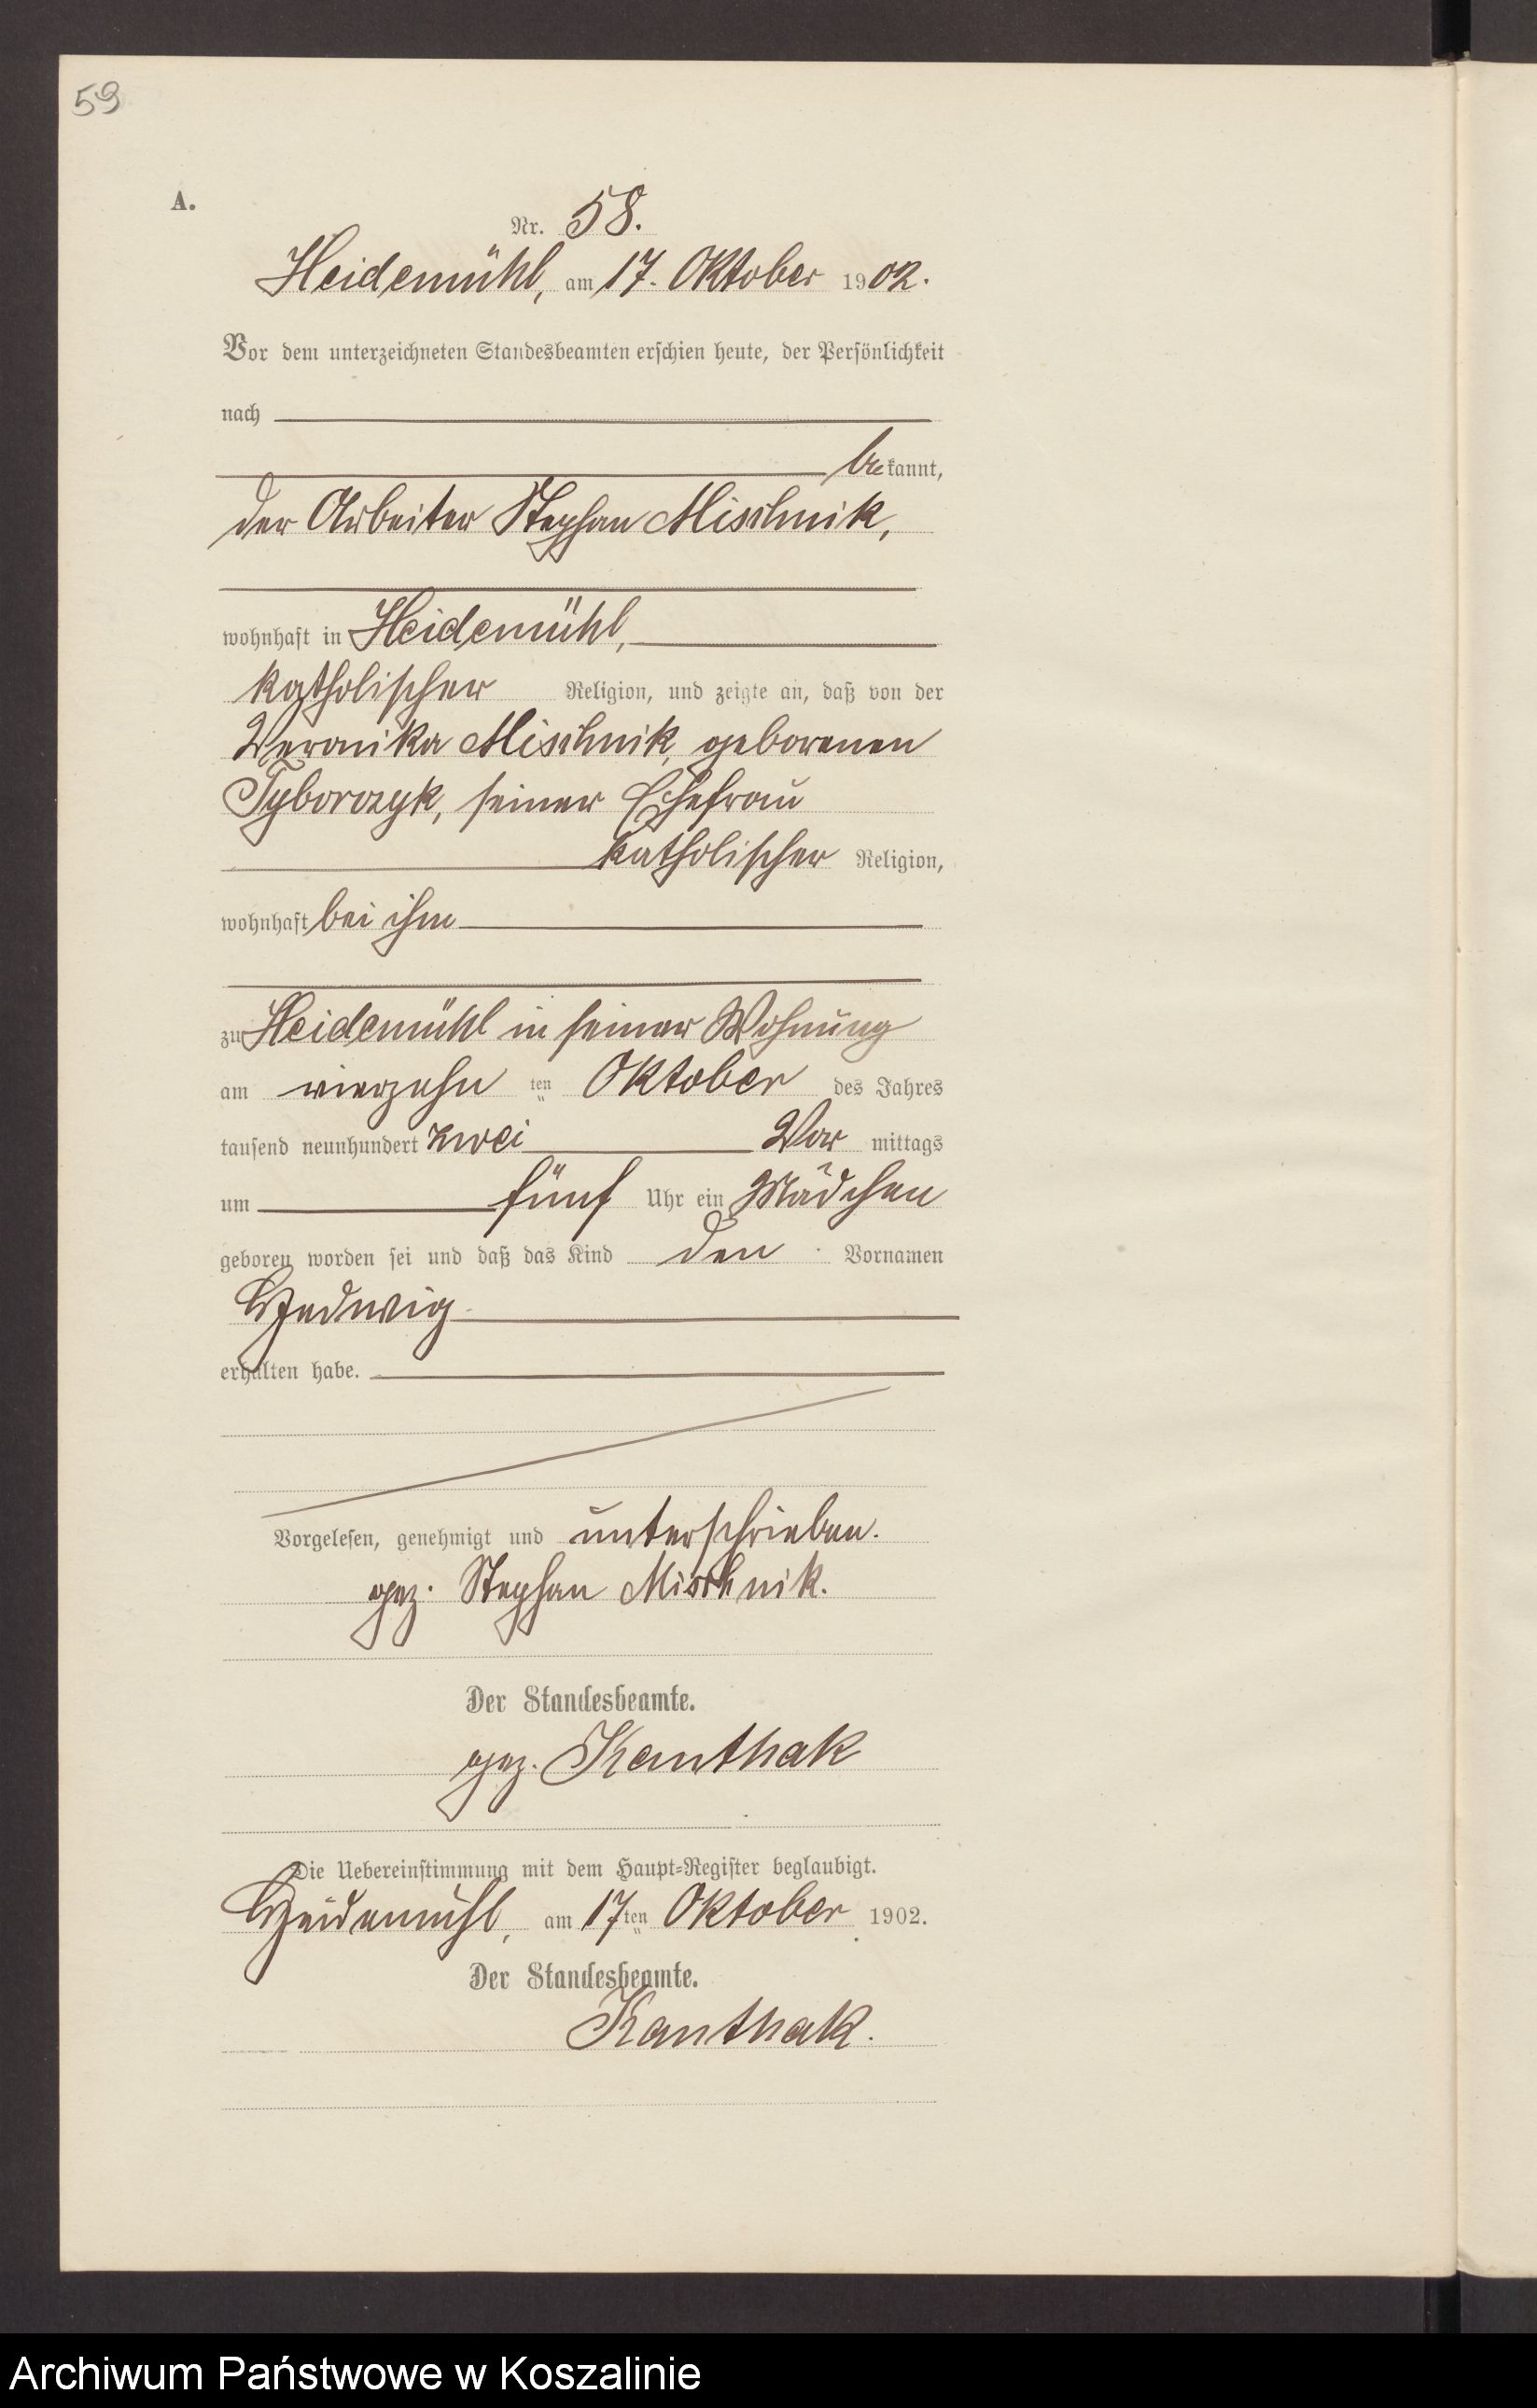 59
A.
Nr. 58.
Heidemühl, am 17. Oktober 1902.
Vor dem unterzeichneten Standesbeamten erschien heute, der Persönlichkeit
nach
bekannt,
der Arbeiter Stephan Mischnik,
wohnhaft in Heidemühl,
katholischer Religion, und zeigte an, daß von der
Veronika Mischnik, geborenen
Tyborczyk, seiner Ehefrau
katholischer Religion,
wohnhaft bei ihm
zu Heidemühl in seiner Wohnung
am vierzehn ten Oktober des Jahres
tausend neunhundert zwei Vor mittags
um fünf Uhr ein Mädchen
geboren worden sei und daß das Kind den Vornamen
Hedwig
erhalten habe.
Vorgelesen, genehmigt und unterschrieben.
gez. Stephan Mischnik.
Der Standesbeamte.
gez. Kanthak
Die Uebereinstimmung mit dem Haupt-Register beglaubigt.
Heidemühl, am 17ten Oktober 1902.
Der Standesbeamte.
Kanthak.
Archiwum Państwowe w Koszalinie